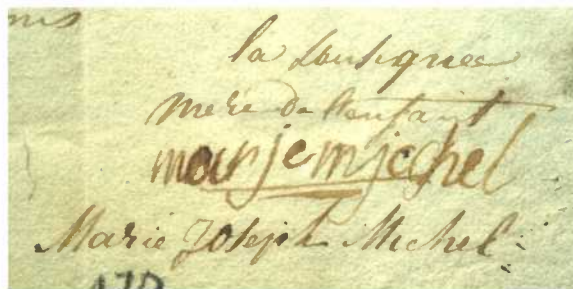 la sousignée
mere de l'enfant
marje mjechel
Marie Joseph Michel